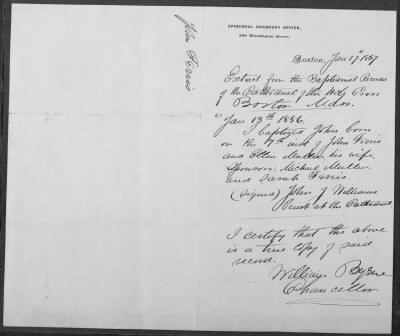 John Ferris
EPISCOPAL CHANCERY OFFICE,
Washington Street.
Boston, Jan 17th 1867
Extract from the Baptismal Records
of the Cathedral of the Holy Cross
Boston Mass.
"Jan 13th 1856.
I baptized John born
on the 7th inst of John Ferris
and Ellen Mullen his wife,
Sponsors: Michael Mullen
and Sarah Ferris
(Signed) John J Williams
Priest at the Cathedral
I certify that this above
is a true copy of said
record.
William Byrne
Chancellor